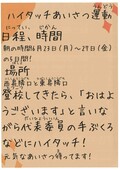 ハイタッチあいさつ運動
にってい じかん
日程、時間
朝の時間6月23日(月)〜29日(金)
の5日間!
場所
登校してきたら、「おはよ
うございます」と言いな
がら代表委員の手ぶくろ
などにハイタッチ!
元気なあいさつ待ってます!